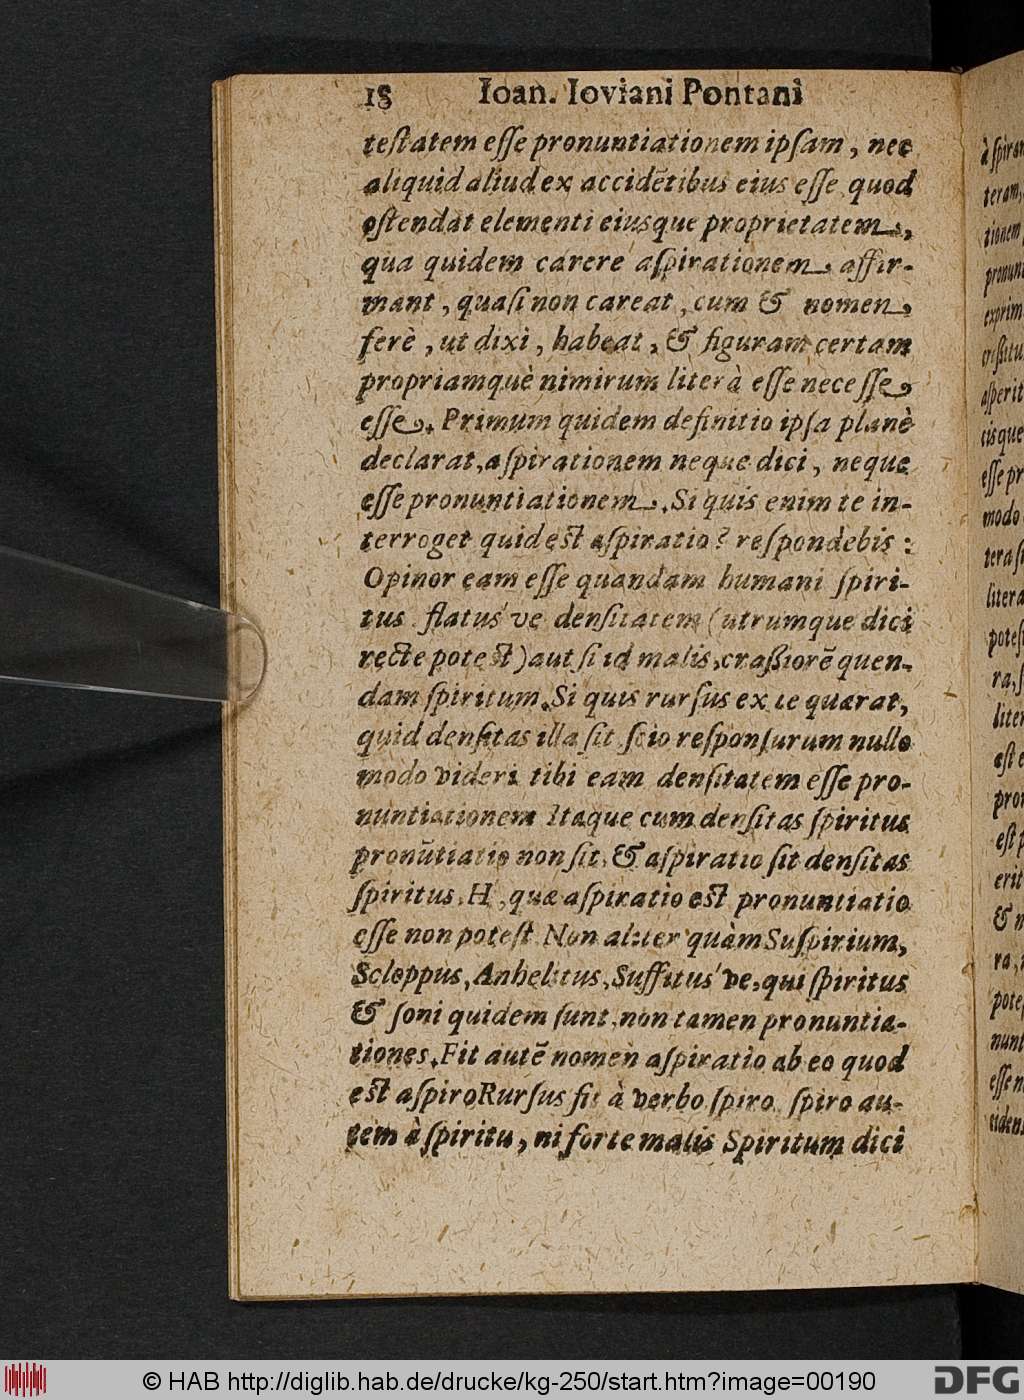 18 Ioan. Ioviani Pontani
teſtatem eſſe pronuntiationem ipſam, nec
aliquid aliud ex accidẽtibus eius eſſe quod
oſtendat elementi eiusque proprietatem,
qua quidem carere aſpirationem affir-
mant, quaſi non careat, cum & nomen
ferè, ut dixi, habeat, & figuram certam
propriamquè nimirum literà eſſe neceſſe
eſſe. Primum quidem definitio ipſa planè
declarat, aſpirationem neque dici, neque
eſſe pronuntiationem. Si quis enim te in-
terroget quid eſt aſpiratio? reſpondebis:
Opinor eam eſſe quandam humani ſpiri-
tus flatus've denſitatem (utrumque dici
recte poteſt) aut ſi id malis, craßiorẽ quen-
dam ſpiritum. Si quis rurſus ex te quærat,
quid denſitas illa ſit ſcio reſponſurum nullo
modo videri tibi eam denſitatem eſſe pro-
nuntiationem Itaque cum denſitas ſpiritus
pronũtiatio non ſit, & aſpiratio ſit denſitas
ſpiritus. H, quæ aſpiratio eſt pronuntiatio
eſſe non poteſt. Non aliter quàm Suſpirium,
Scloppus, Anhelitus, Suffitus've, qui ſpiritus
& ſoni quidem ſunt, non tamen pronuntia-
tiones. Fit autẽ nomen aſpiratio ab eo quod
eſt aſpiro Rurſus fit à verbo ſpiro, ſpiro au-
tem à ſpiritu, ni forte malis Spiritum dici
à ſpirat
teram,
tionem
pronunt
exprim
aſperit
cisque
eſſe pr
modo
tera ſi
litera
poteſ
ra, ſ
liter
eſt e
pron
eſt p
erit
& n
ra, n
poteſ
nunt
eſſe n
cidens
© HAB http://diglib.hab.de/drucke/kg-250/start.htm?image=00190
DFG